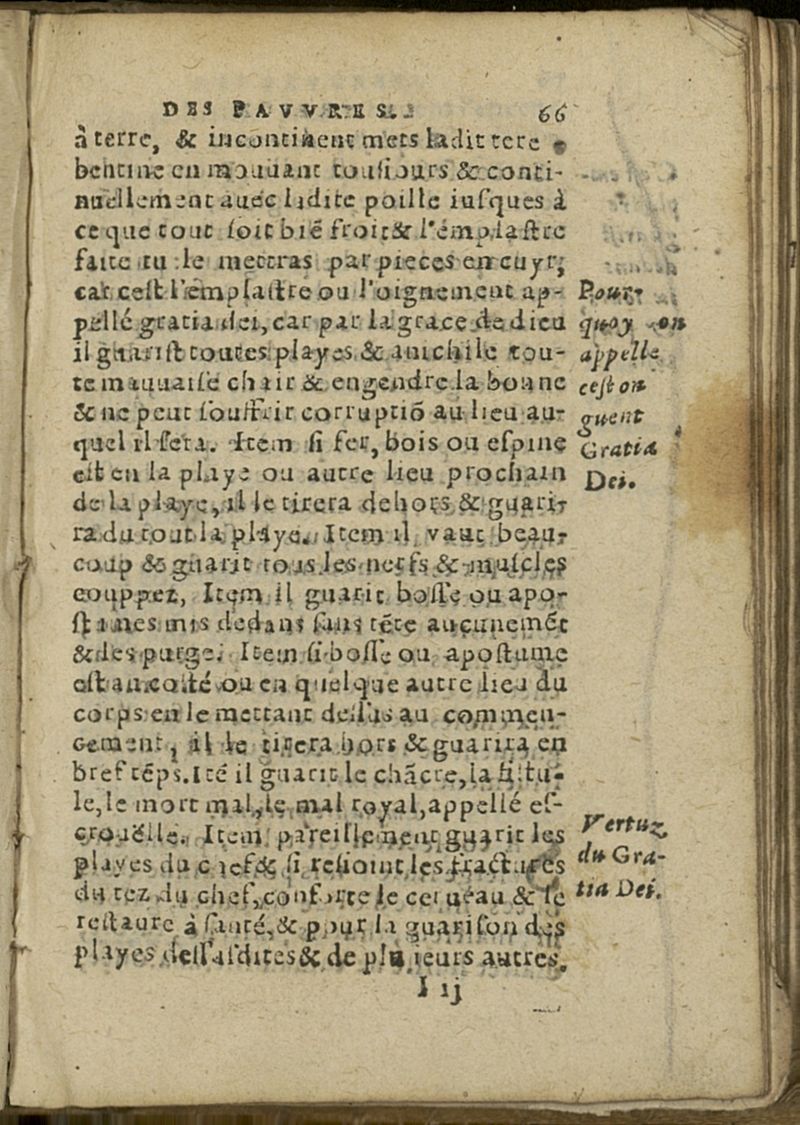 DES PAVVRES. 66
à terre, & incontinent mets ladit tere
bentine en mouuant tousiours & conti-
nuellement auec ladite poille iusques à
ce que tout soit biẽ froit & l'ẽmplastre
faite tu le mettras par pieces en cuyr,
car cest l'emplastre ou l'oignement ap-
pellé gratia dei, car par la grace de dieu
il guarist toutes playes & anichile tou-
te mauuaise chair & engendre la bonne
& ne peut souffrir corruptiõ au lieu au-
quel il sera. Item si fer, bois ou espine
est en la playe ou autre lieu prochain
de la playe, il le tirera dehors & guari-
ra du tout la playe. Item il vaut beau-
coup & guarit tous les nerfs & muscles
couppez, Item il guarit bosse ou apo-
stumes mis dedans sans tẽte aucunemẽt
& les purge. Item si bosse ou apostume
est au costé ou en quelque autre lieu du
corps en le mettant dessus au commen-
cement, il le tirera hors & guarira en
bref tẽps. Itẽ il guarit le chãcre, la fistu-
le, le mort mal, le mal royal, appellé es-
crouëlle. Item pareillement guarit les
playes du chef & si reioint les fractures
du tez du chef, conforte le cerueau & le
restaure à santé, & pour la guarison des
playes dessusdites & de plusieurs autres.
I ij
Pour-
quoy on
appelle
cest on
guent
Gratia
Dei.
Vertuz
du Gra-
tia Dei.